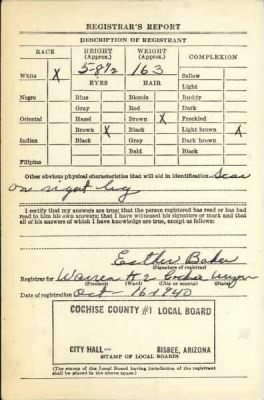 REGISTRAR'S REPORT
DESCRIPTION OF REGISTRANT
RACE HEIGHT (Approx.) WEIGHT (Approx.) COMPLEXION
White X 5-8½ 163 Sallow
EYES HAIR Light
Negro Blue Blonde Ruddy
Gray Red Dark
Oriental Hazel Brown X Freckled
Brown X Black Light brown X
Indian Black Gray Dark brown
Bald Black
Filipino
Other obvious physical characteristics that will aid in identification Scar
on right leg
I certify that my answers are true; that the person registered has read or has had
read to him his own answers; that I have witnessed his signature or mark and that
all of his answers of which I have knowledge are true, except as follows:
Esther Baker
(Signature of registrar)
Registrar for Warren # 2 Cochise
(Precinct) (Ward) (City) (State)
Date of registration Oct 16 1940
COCHISE COUNTY #1 LOCAL BOARD
CITY HALL BISBEE, ARIZONA
STAMP OF LOCAL BOARD
(The stamp of the Local Board having jurisdiction of the registrant
shall be placed in the above space.)